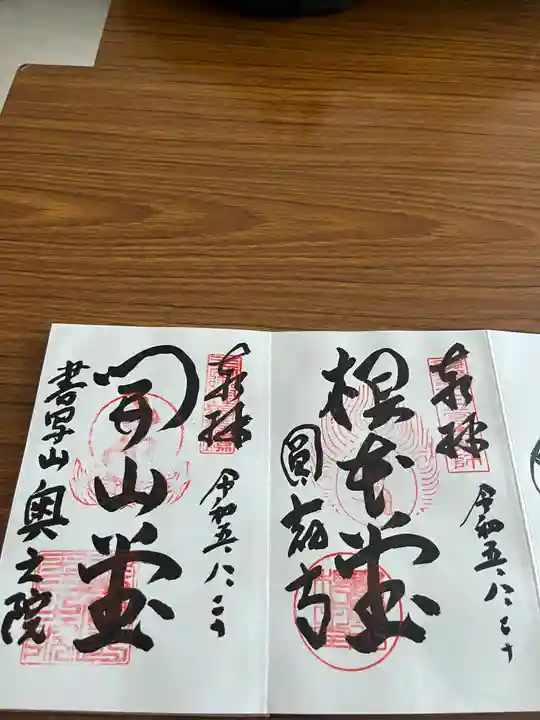 奉拝
令和五.八.二十
根本堂
圓教寺
奉拝
令和五.八.二十
開山堂
書写山 奥之院